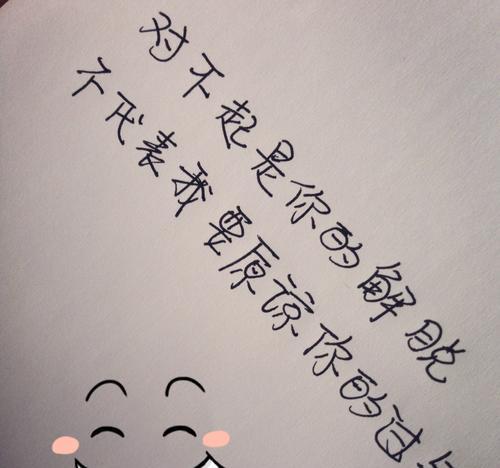 对不起是你的解脱
不代表我要原谅你的过